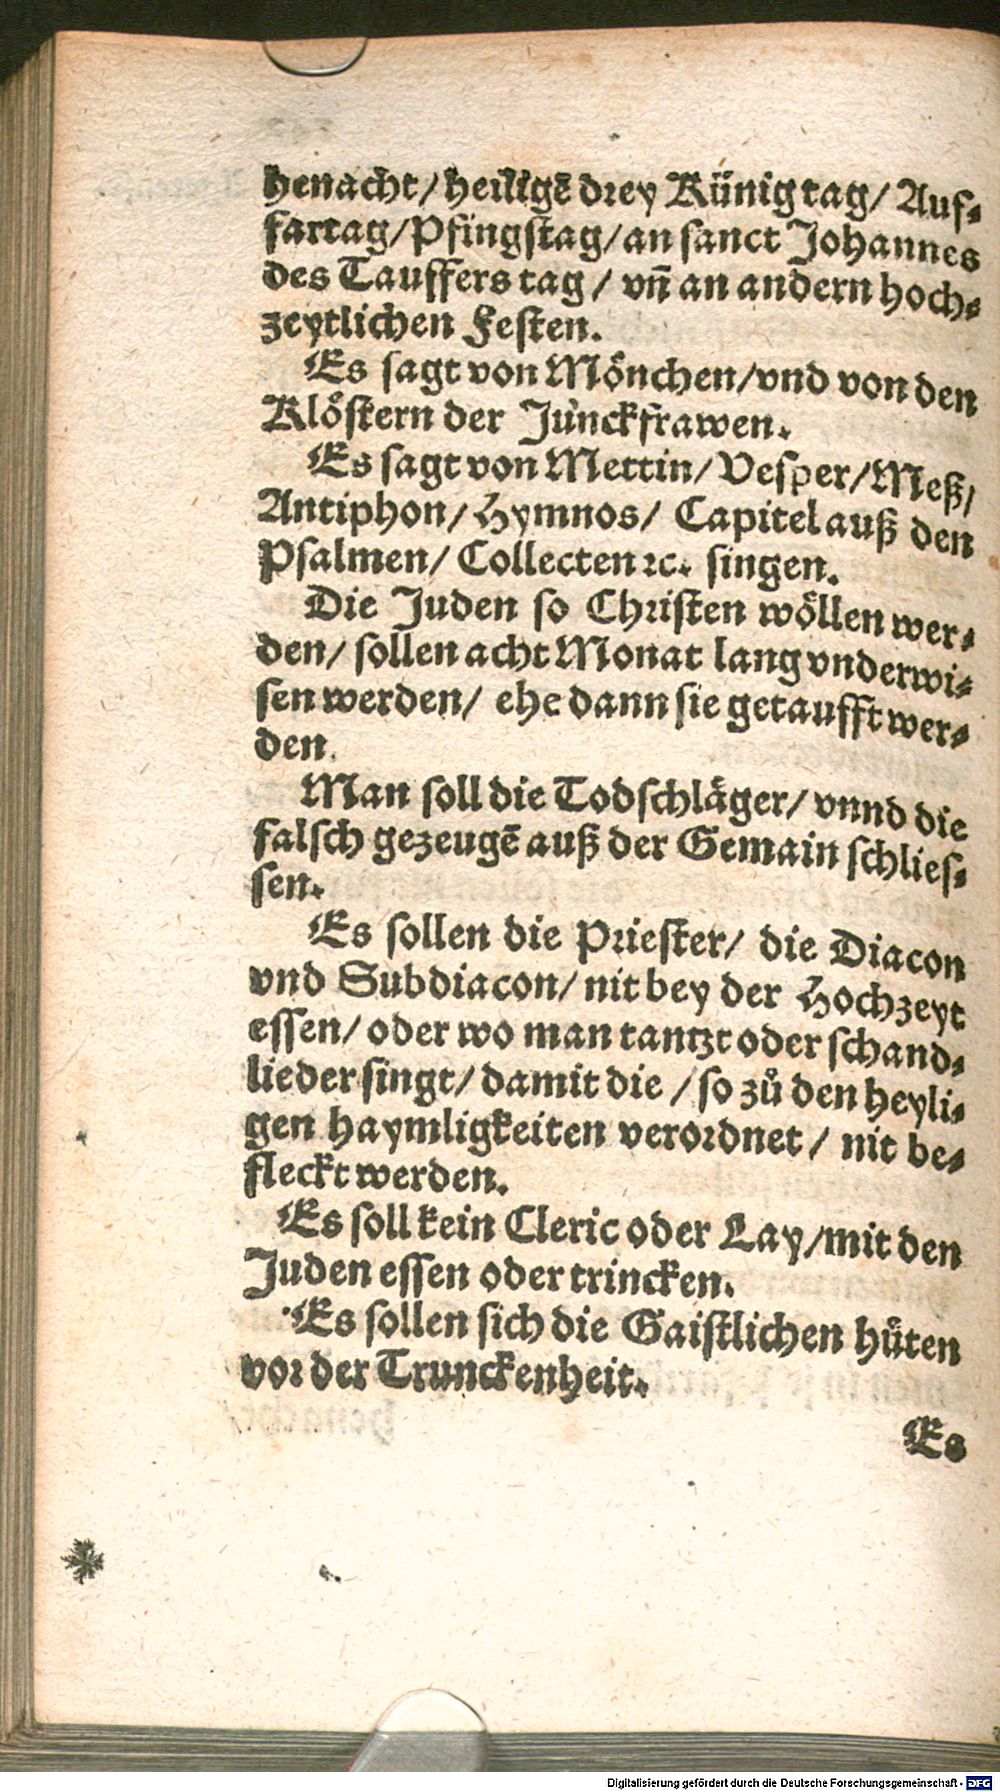 henacht/ heiligē drey Künig tag/ Auf⸗
fartag/ Pfingstag/ an sanct Johannes
des Tauffers tag/ vñ an andern hoch⸗
zeytlichen Festen.
Es sagt von Mönchen/ vnd von den
Klöstern der Junckfrawen.
Es sagt von Mettin/ Vesper/ Meß/
Antiphon/ Hymnos/ Capitel auß den
Psalmen/ Collecten ꝛc. singen.
Die Juden so Christen wöllen wer⸗
den/ sollen acht Monat lang vnderwi⸗
sen werden/ ehe dann sie getaufft wer⸗
den.
Man soll die Todschläger/ vnnd die
falsch gezeugē auß der Gemain schlies⸗
sen.
Es sollen die Priester/ die Diacon
vnd Subdiacon/ nit bey der Hochzeyt
essen/ oder wo man tantzt oder schand⸗
lieder singt/ damit die / so zů den heyli⸗
gen haymligkeiten verordnet/ nit be⸗
fleckt werden.
Es soll kein Cleric oder Lay/ mit den
Juden essen oder trincken.
Es sollen sich die Gaistlichen hůten
vor der Trunckenheit.
Es
Digitalisierung gefördert durch die Deutsche Forschungsgemeinschaft - DFG